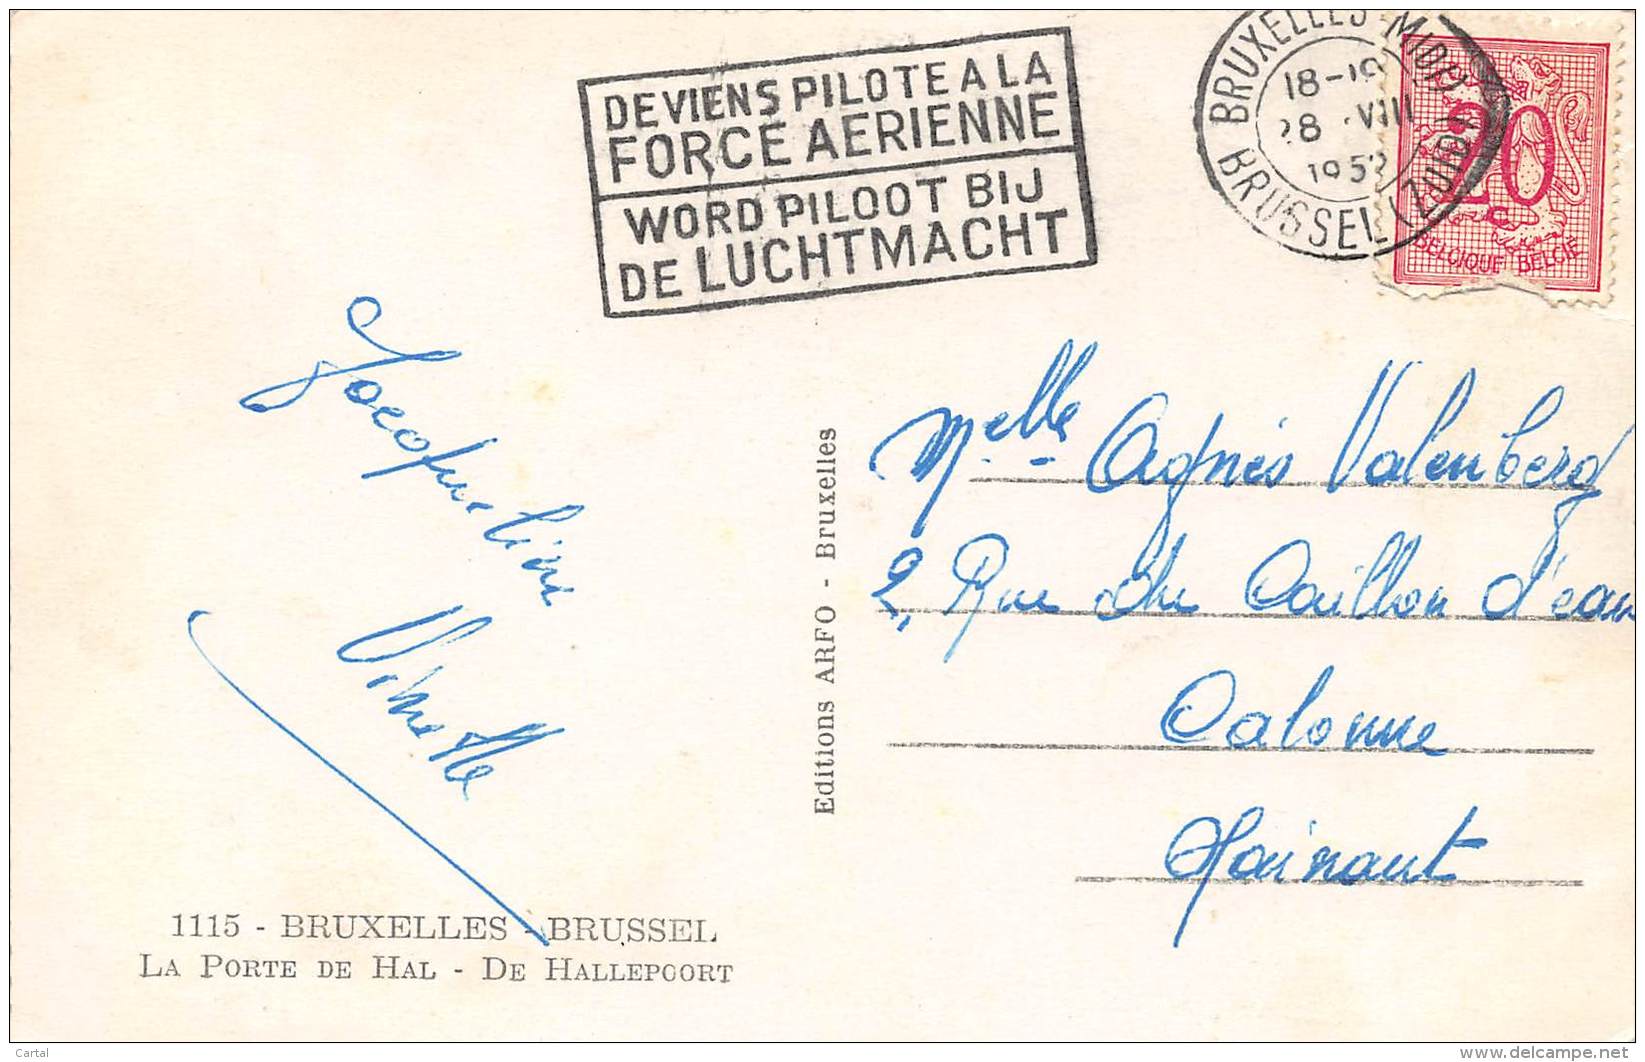 DEVIENS PILOTE A LA
FORCE AERIENNE
WORD PILOOT BIJ
DE LUCHTMACHT
BRUXELLES (MIDI)
18-19
28 VIII
195
BRUSSEL (ZUID)
20 c
BELGIQUE BELGIË
Jacqueline
Editions ARFO - Bruxelles
Melle Agnès Valenberg
2, Rue du Caillou d'eau
Calonne
Hainaut
1115 - BRUXELLES - BRUSSEL
LA PORTE DE HAL - DE HALLEPOORT
Cartal
www.delcampe.net